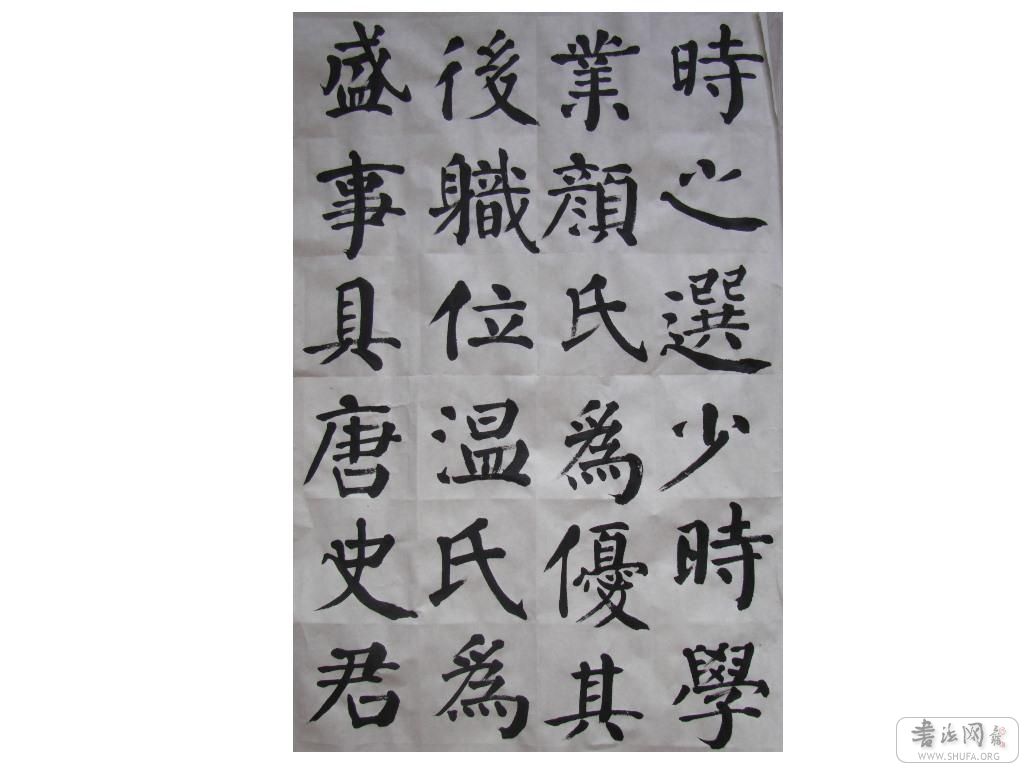 時之選少時學
業顔氏為優其
後職位温氏為
盛事具唐史君
書法网
WWW.SHUFA.ORG